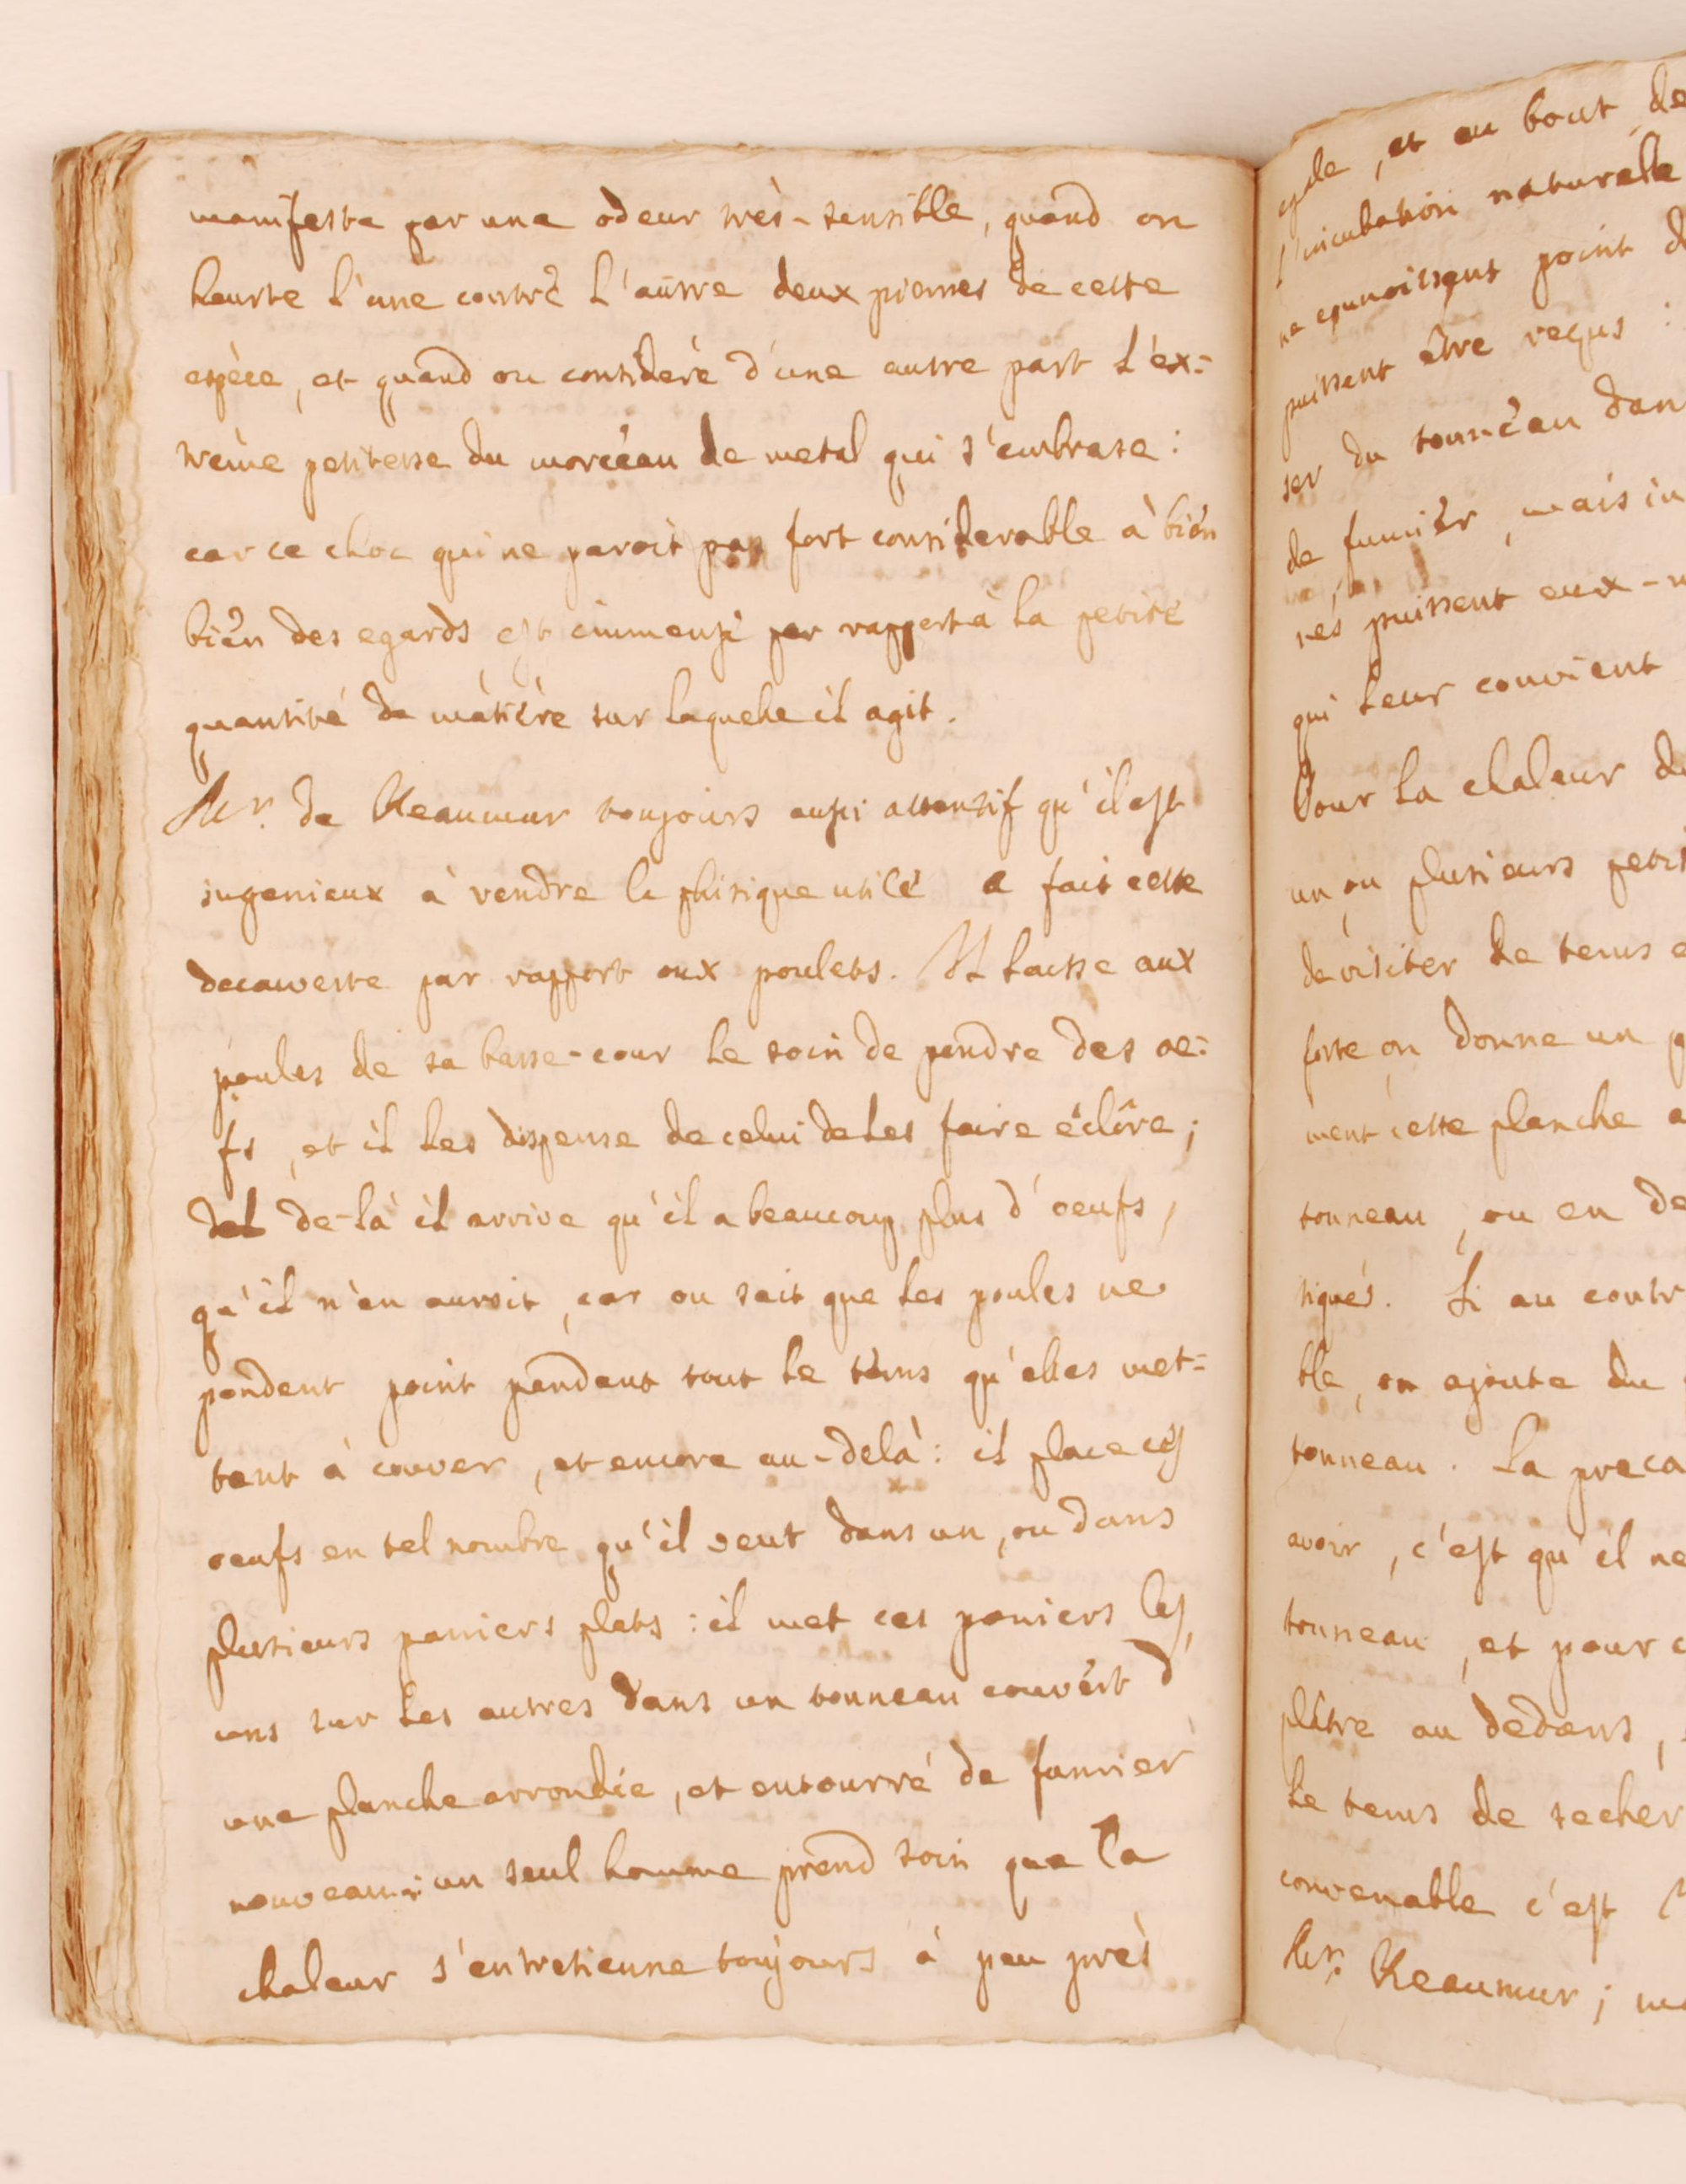 manifeste par une odeur très-sensible, quand on
heurte l'une contre l'autre deux pierres de cette
espèce, et quand on consideré d'une autre part l'ex=
trême petitesse du morceau de metal qui s'embrase :
car ce choc qui ne paroit pas fort considerable à bien
bien des egards est immense par rapport à la petite
quantité de matière sur laquelle il agit.
Mr. de Reaumur toujours aussi attentif qu'il est
ingenieux à rendre la phisique utile a fait cette
decouverte par rapport aux poulets. Il laisse aux
poules de sa basse-cour le soin de pondre des oe=
fs, et il les dispense de celui de les faire éclôre ;
del de-là il arrive qu'il a beaucoup plus d'oeufs,
qu'il n'en auroit, car on sait que les poules ne
pondent point pendant tout le tems qu'elles met=
tent à couver, et encore au-delà : il place ces
oeufs en tel nombre qu'il veut dans un, ou dans
plusieurs paniers plats : il met ces paniers les
uns sur les autres dans un tonneau couvert d'
une planche arrondie, et entourré de fumier
nouveau : un seul homme prend soin que la
chaleur s'entretienne toujours à peu près
et au bout de
l'incubation naturelle
ne connoissent point d
puissent être reçus :
ser du tonneau dan
de fumier, mais in
nés puissent eux-m
qui leur convient
Pour la chaleur d
un ou plusieurs petit
de visiter le tems e
forte on donne un p
ment cette planche a
tonneau, ou en de
tiques. Si au contr
ble, on ajoute du
tonneau. La preca
avoir, c'est qu'il ne
tonneau, et pour c
plâtre au dedans,
le tems de secher
convenable c'est
Mr. Reaumur ; ma